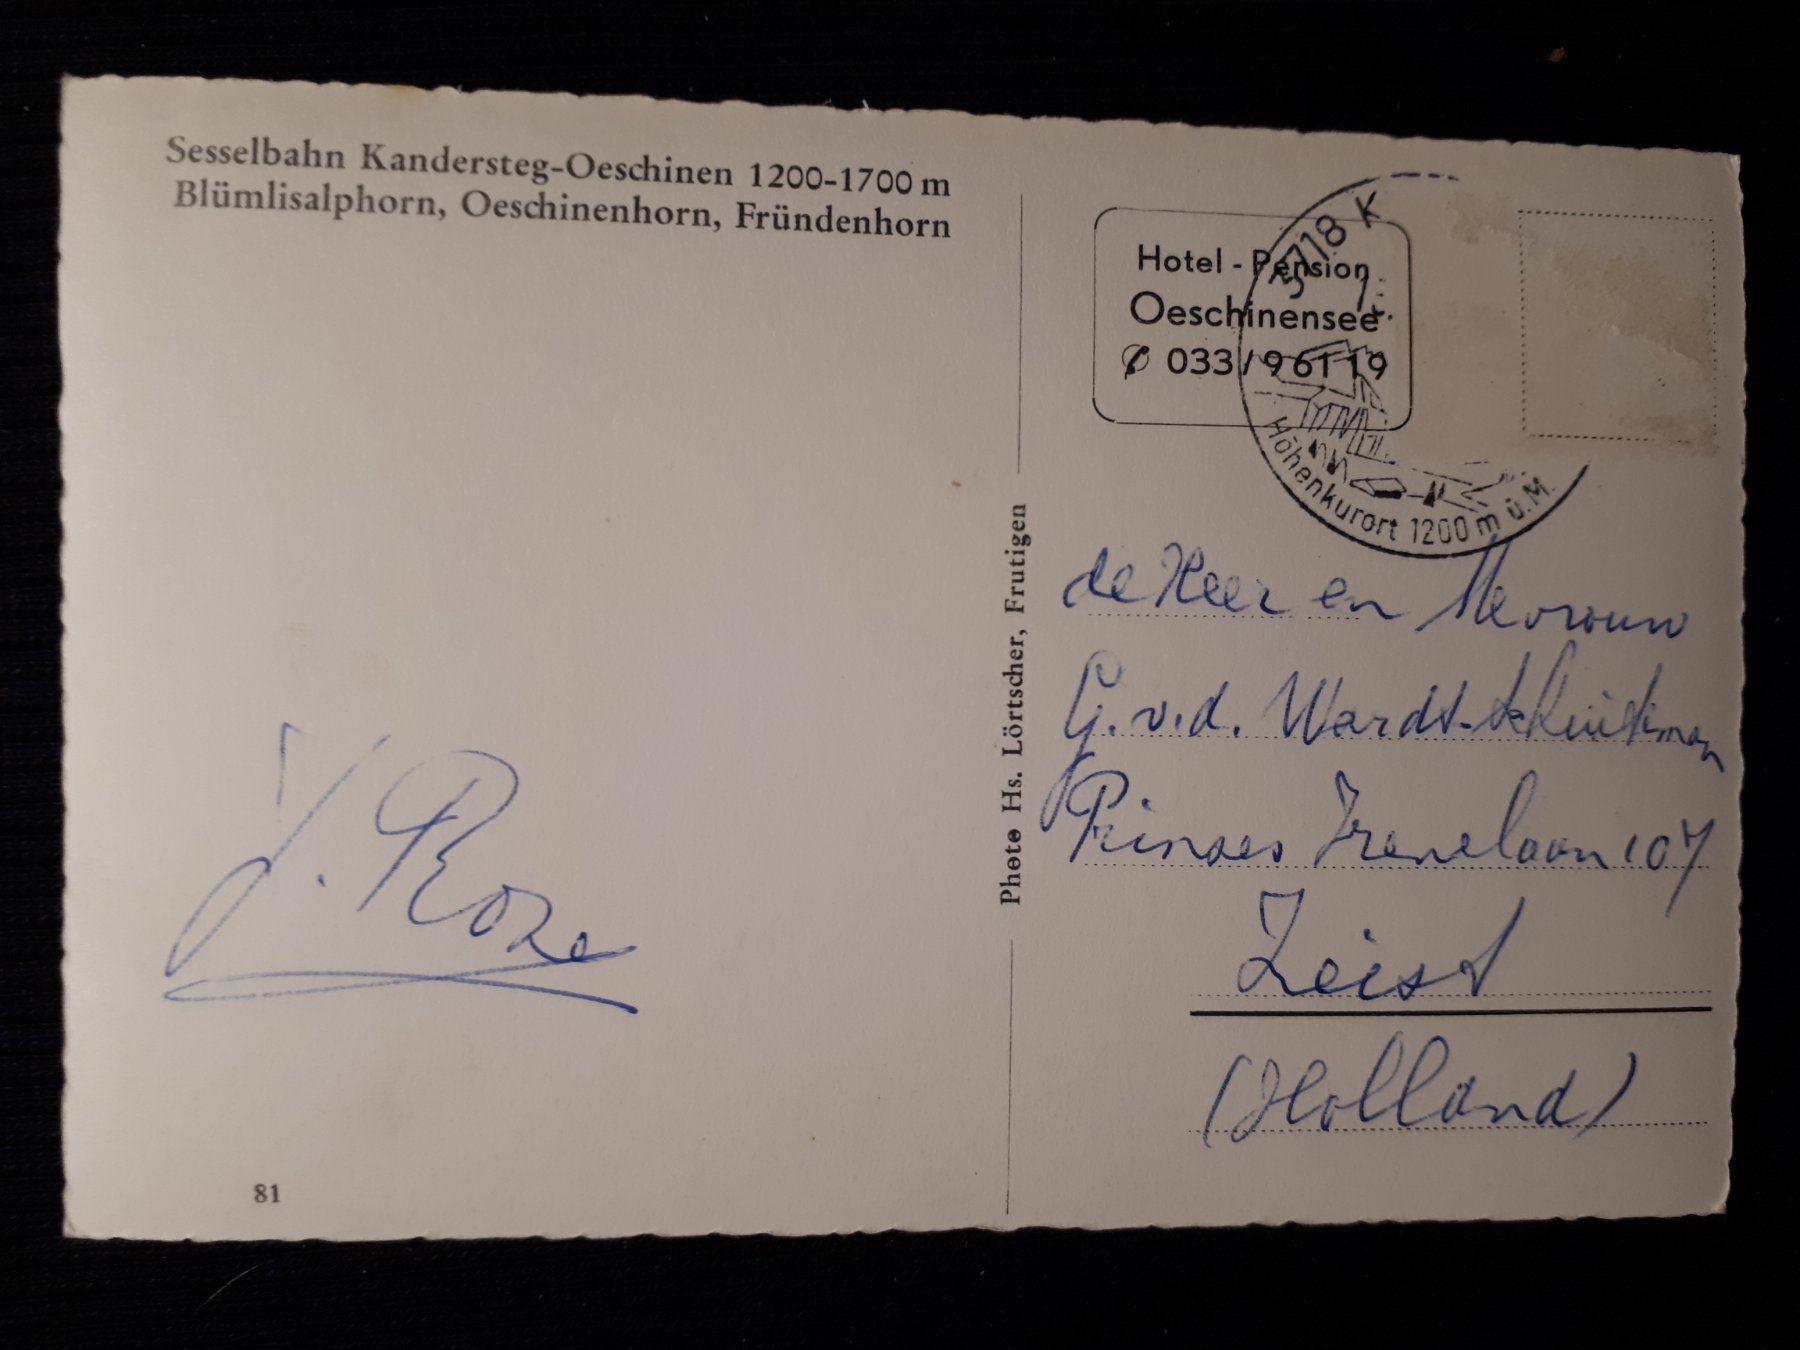 Sesselbahn Kandersteg-Oeschinen 1200-1700 m
Blümlisalphorn, Oeschinenhorn, Fründenhorn
J. Roze
81
Photo Hs. Lörtscher, Frutigen
Hotel - Pension
Oeschinensee
033/96119
3718 K
Höhenkurort 1200 m ü. M.
de Heer en Mevrouw
G. v. d. Wardt-
Prinses Irenelaan 107
Zeist
(Holland)